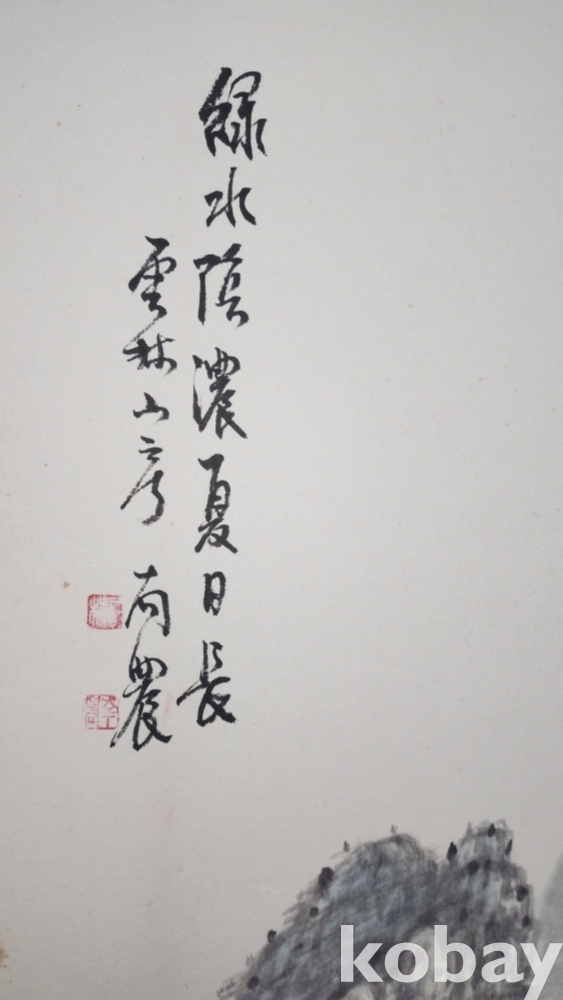 綠水陰濃夏日長
雲林山房 南農
kobay